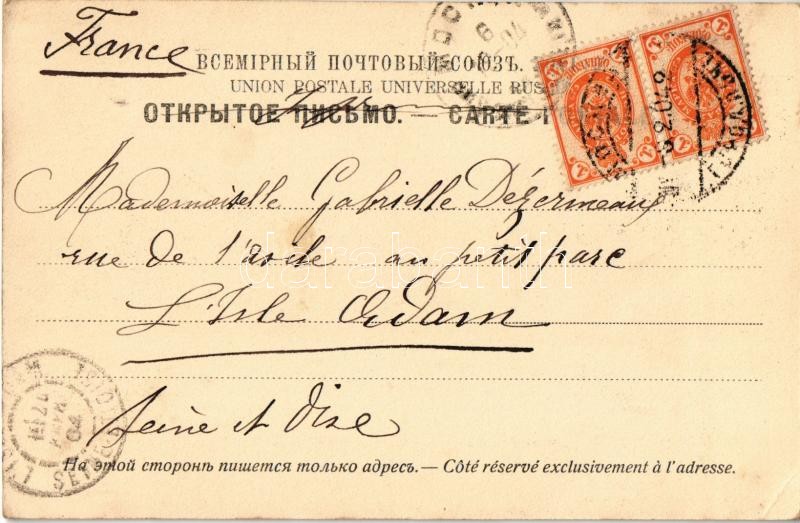 France
ВСЕМІРНЫЙ ПОЧТОВЫЙ СОЮЗЪ.
UNION POSTALE UNIVERSELLE RUS
ОТКРЫТОЕ ПИСЬМО. — CARTE P
Mademoiselle Gabrielle Dézermeaux
rue de l'asile au petit parc
L'Isle Adam
Seine et Oise
На этой сторонѣ пишется только адресъ. — Côté réservé exclusivement à l'adresse.
darabanth